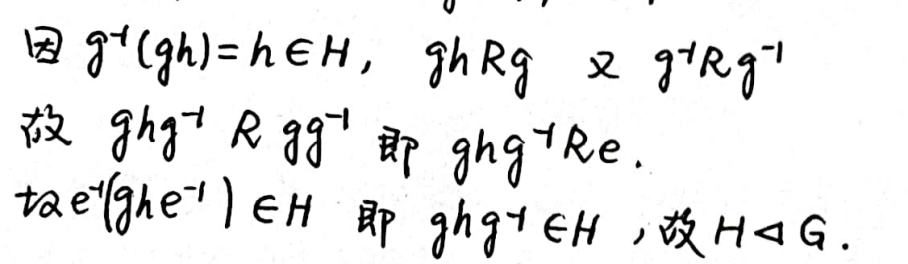 因 g⁻¹(gh)=h∈H, ghRg 又 g⁻¹Rg⁻¹
故 ghg⁻¹ R gg⁻¹ 即 ghg⁻¹Re.
e⁻¹(ghe⁻¹)∈H 即 ghg⁻¹∈H ,故 H⊲G.